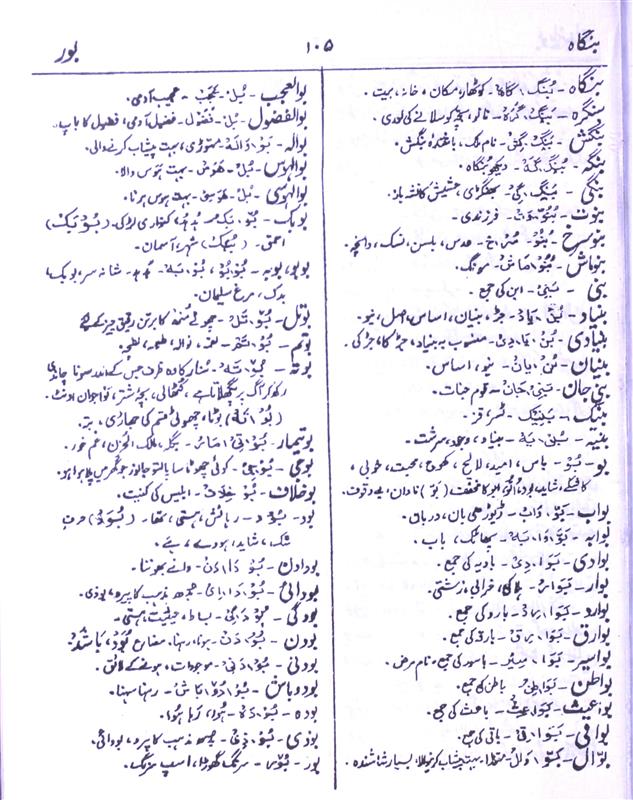 بنگاہ
۱۰۵
بور
بنگاہ - بُنگ ۔ گاہ - کوٹھار، مکان ، خانہ ، بیت ۔
بنگرہ - بَنگ ۔ گَرَہ - نالہ، بچہ کو سلانے کی لوری
بنگش - بَنگ ۔ گَش - نام ملک ، باشندہ بنگش ۔
بنگہ - بُنگ ۔ گَہ - دیکھو بنگاہ ۔
بنگی - بَنگ ۔ گِی - بھنگڑی، حشیش کا نشہ باز ۔
بنوت - بُنُوّ ۔ وَت - فرزندی ۔
بنوسرخ - بُنُو ۔ سُرخ - عدس، بلسن، نسک، دانچہ ۔
بنوماش - بُنُو ۔ مَاش - مونگ ۔
بنی - بَنِی - ابن کی جمع ۔
بنیاد - بُن ۔ یَاد - جڑ، بنیان، اساس، اصل ، نیو ۔
بنیادی - بُن ۔ یَا ۔ دِی - منسوب بہ بنیاد ، جڑ کا ، جڑ کی ۔
بنیان - بُن ۔ یَان - نیو ، اساس ۔
بنی جان - بَنِی ۔ جَان - قوم جنات ۔
بنیک - بَنِیک - قز ۔
بنیہ - بُن ۔ یَہ - بنیاد ، وجود ، سرشت ۔
بو - بُو - باس ، امید ، لالچ ، کھوج ، محبت ، خوبی ،
کاشکے ، شاید ، بود ، ابو کا مخفف (بَو) نادان ، بے وقوف ۔
بواب - بَوّ ۔ وَاب - ڈیوڑھی بان ، دربان ۔
بوابہ - بَوّ ۔ وَا ۔ بَہ - پھاٹک ، باب ۔
بوادی - بَوَا ۔ دِی - بادیہ کی جمع ۔
بوار - بَوَار - ہلاکی، خرابی ، زشتی ۔
بوارد - بَوَا ۔ رِد - بارد کی جمع ۔
بوارق - بَوَا ۔ رِق - بارق کی جمع ۔
بواسیر - بَوَا ۔ سِیر - باسور کی جمع ، نام مرض ۔
بواطن - بَوَا ۔ طِن - باطن کی جمع ۔
بواعث - بَوَا ۔ عِث - باعث کی جمع ۔
بواقی - بَوَا ۔ قِی - باقی کی جمع ۔
بوّال - بَوّ ۔ وَال - بہت پیشاب کرنیوالا، بسیار شاشندہ ۔
بوالعجب - بُل ۔ عَجَب - عجیب آدمی ۔
بوالفضول - بُل ۔ فُضُول - فضول آدمی ، فضول کا باپ ۔
بوالہ - بَوّ ۔ وَالَہ - بہت پیشاب کرنے والی ۔
بوالہوس - بُل ۔ ہَوَس - بہت ہوس والا ۔
بوالہوسی - بُل ۔ ہَوَسِی - بہت ہوس ہونا ۔
بوبک - بُو ۔ بَک - ہُدہُد ، کنواری لڑکی ۔ (بُو بَک)
احمق ۔ شہر ، آسمان ۔
بوبو، بوبہ - بُو ۔ بُو ، بُو ۔ بَہ - ہدہد ، شانہ سر، بوبک،
بدک ، مرغ سلیمان ۔
بوتل - بُو ۔ تَل - چھوٹے منھ کا برتن رقیق چیز کے لیے
بوتم - بُو ۔ تَم - لقمہ ، نوالہ ، طعمہ ، لطمہ ۔
بوتہ - بُو ۔ تَہ - سنار کا وہ ظرف جس کے اندر سونا چاندی
رکھ کر آگ پر پگھلاتا ہے ، کٹھالی، بچہ شتر، نوجوان اونٹ ۔
(بُو ۔ تَہ) بوٹا ، چھوٹی قسم کی جھاڑی ، بتہ ۔
بوتیمار - بُو ۔ تِی ۔ مَار - بگلہ ، ملک الحزن ، غم خور ۔
بوجی - بُو ۔ جِی - کوئی چھوٹا سا پالتو جانور جو گھر میں پلا ہوا ہو ۔
بوخلاف - بُو ۔ خِلَاف - ابلیس کی کنیت ۔
بود - بُود - رہائش ، ہستی ، تھا ۔ (بُوَد) حرف
شک ، شاید ، ہووے ، ہے ۔
بودادن - بُو ۔ دَا ۔ دَن - دانے بھوننا ۔
بودائی - بُو ۔ دَا ۔ ئِی - بدھ مذہب کا پیرو ، بودی ۔
بودگی - بُو ۔ دَ ۔ گِی - بساط ، حیثیت ، ہستی ۔
بودن - بُو ۔ دَن - ہونا ، رہنا ، مضارع بُوَد ، باشد ۔
بودنی - بُو ۔ دَ ۔ نِی - موجودات ، ہونے کے لائق ۔
بودوباش - بُو ۔ دُو ۔ بَاش - رہنا سہنا ۔
بودہ - بُو ۔ دَہ - ہوا ، رہا ہوا ۔
بودی - بُو ۔ دِی - بدھ مذہب کا پیرو ، بودائی ۔
بور - بُور - سرنگ گھوڑا ، اسپ سرنگ ۔